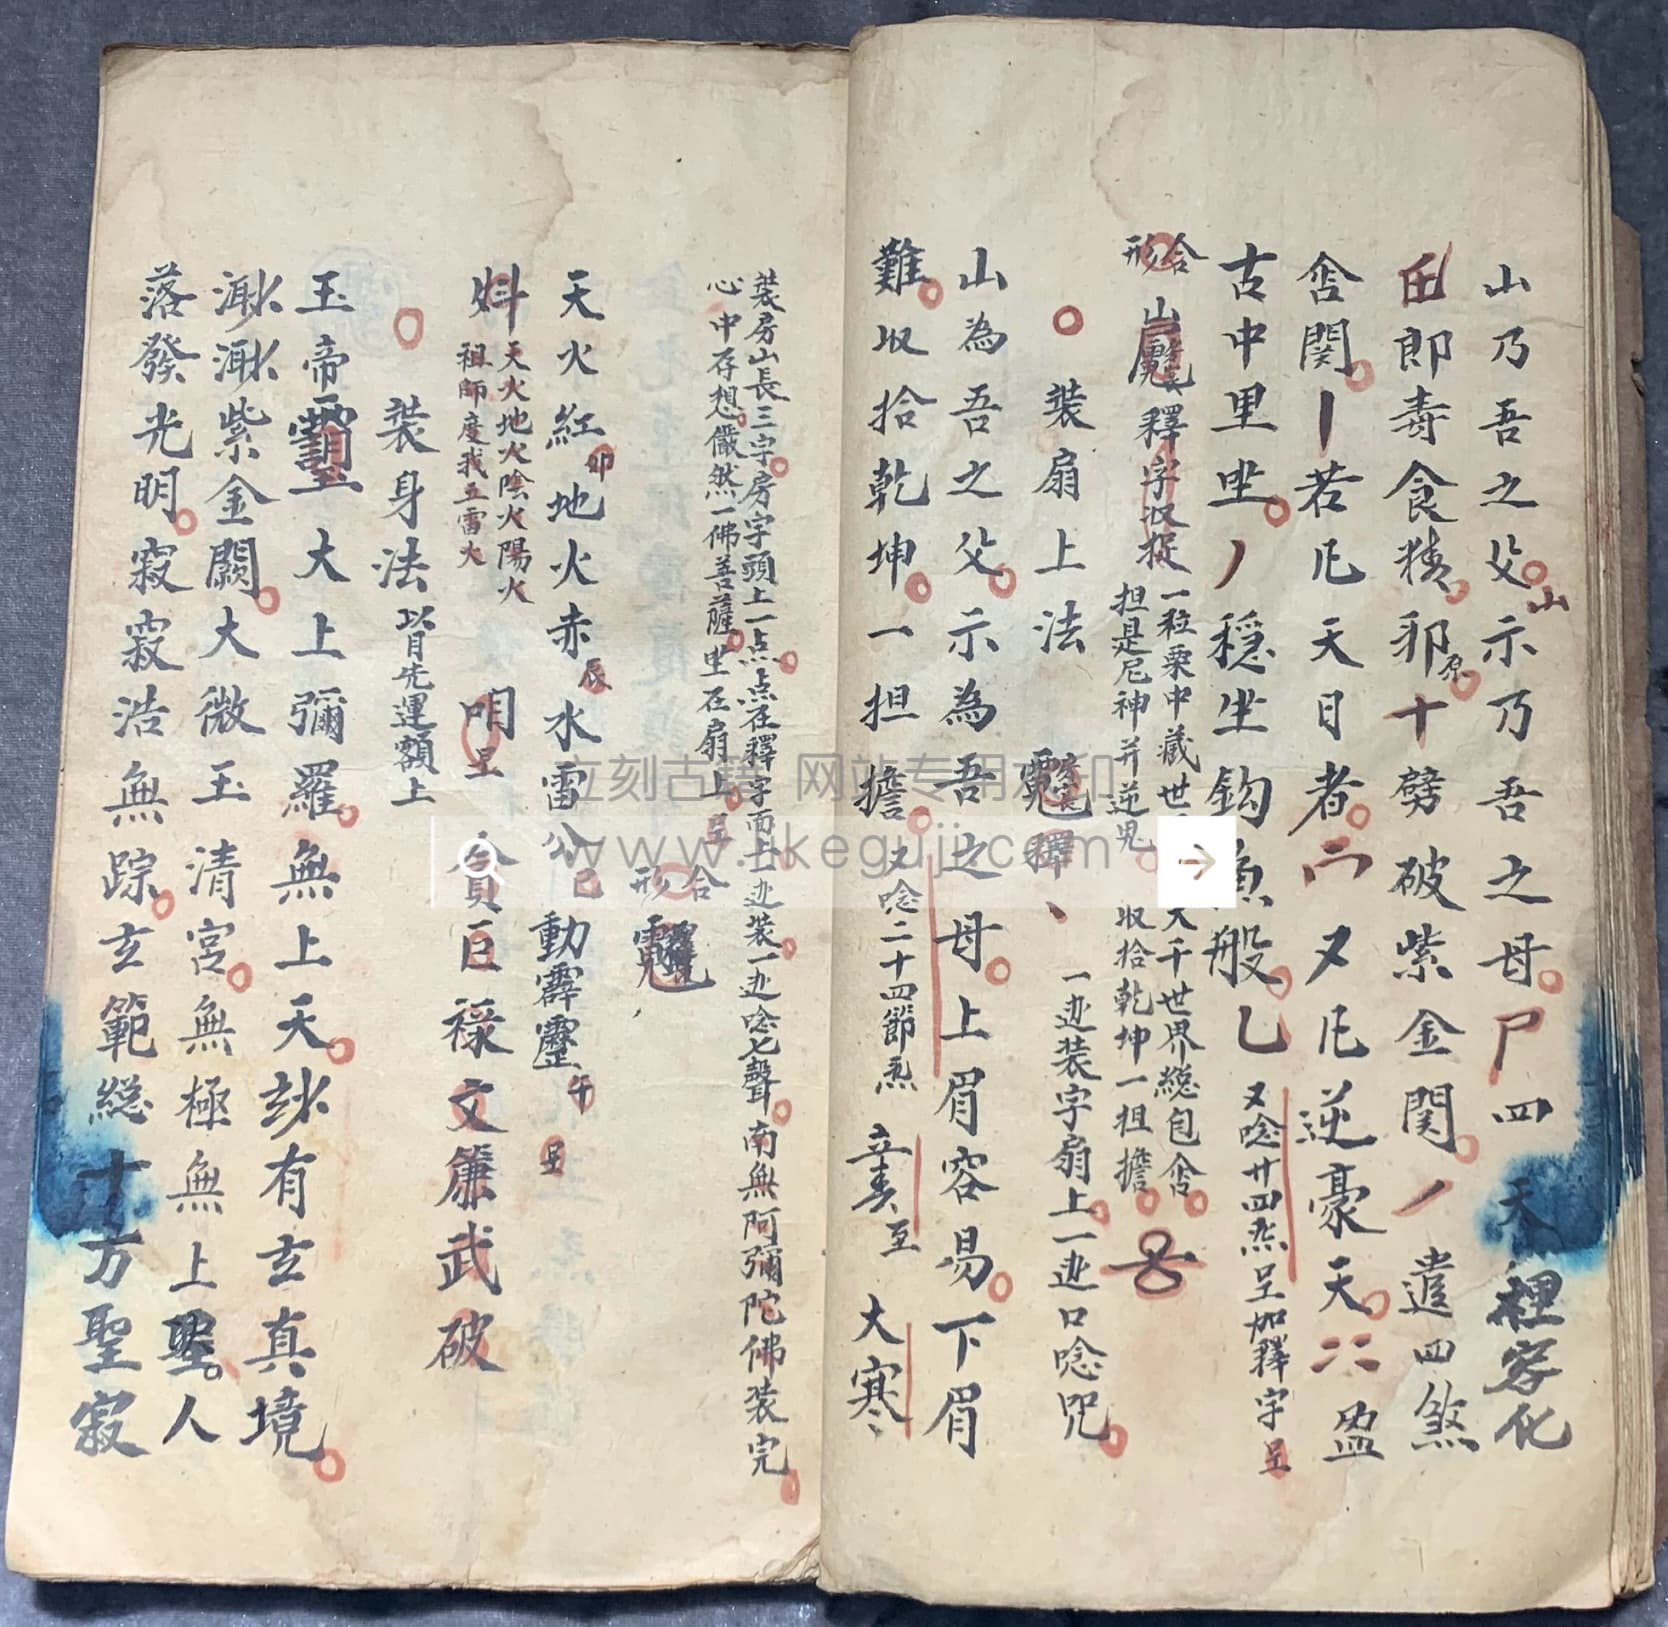 山乃吾之父示乃吾之母尸四
山
裡字化
郎壽食猪邪十劈破紫金関ノ遣四煞
含関丨若凡天目者二又凡逆豪天
古中里坐ノ穩坐鈎魚般乚又唸廿四炁呈加釋字呈
合形
釋字收捉
一粒粟中藏世
大千世界縂包含
担是尼神并逆児
收拾乾坤一担擔
裝扇上法
釋
一边装字扇上一边口唸咒
山為吾之父示為吾之母上眉容易下眉
難收拾乾坤一担擔又唸二十四節炁
至
大寒
裝房山長三字房字頭上一点点在釋字面上边装一边唸七聲南無阿彌陀佛装完
心中存想儼然一佛菩薩坐在扇上呈
合形
天火紅卯地火赤辰水雷公己動霹靂午呈
天火地火陰火陽火
祖師度我五雷火
呈
貪巨祿文廉武破
裝身法以目先運額上
玉帝
大上彌羅無上天妙有玄真境
渺渺紫金闕大微玉清宮無極無上聖人
落發光明寂寂浩無踪玄範縂十方聖寂
立刻古籍 网站专用水印
www.likeguji.com